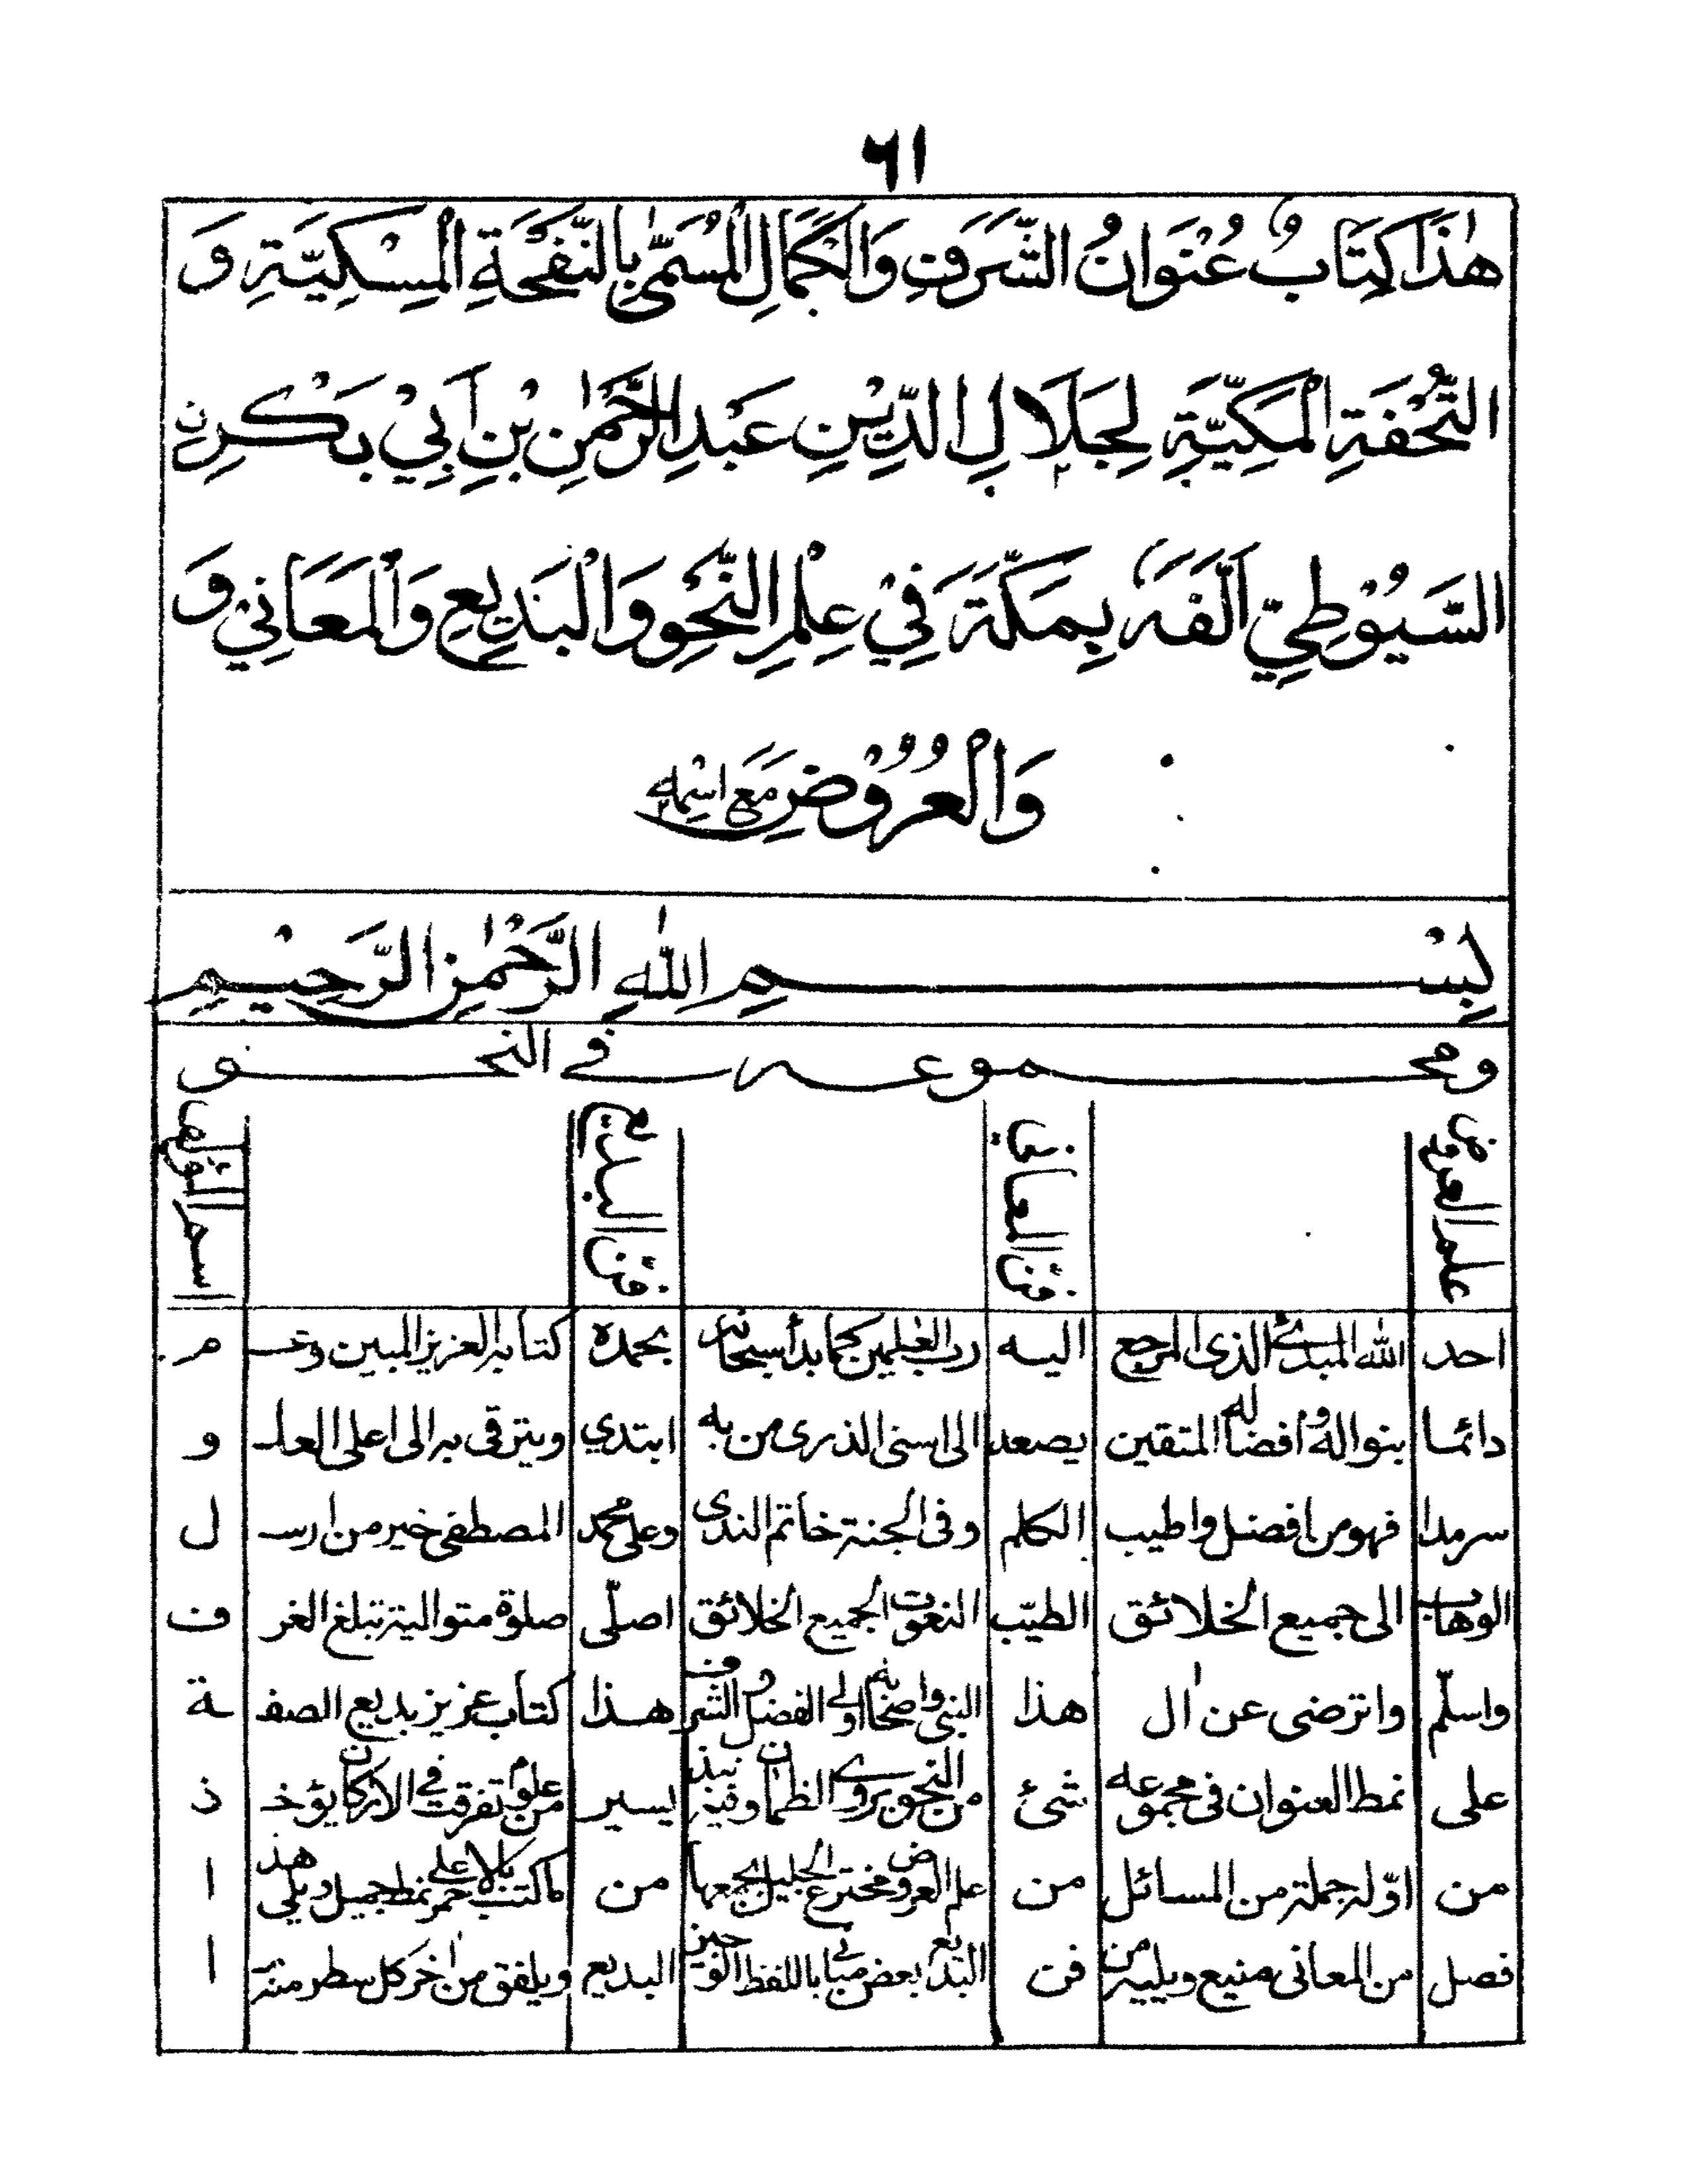 ٦١
هٰذَا كِتَابُ عُنْوَانُ الشَّرَفِ وَالْكَمَالِ الْمُسَمّٰى بِالنَّفْحَةِ الْمِسْكِيَّةِ وَ
التُّحْفَةِ الْمَكِيَّةِ لِجَلَالِ الدِّيْنِ عَبْدِ الرَّحْمٰنِ بْنِ اَبِيْ بَكْرِنِ
السُّيُوْطِيِّ اَلَّفَهٗ بِمَكَّةَ فِيْ عِلْمِ النَّحْوِ وَالْبَدِيْعِ وَالْمَعَانِيْ وَ
وَالْعُرُوْضِ مَعَ اسْمِهٖ
بِسْمِ اللّٰهِ الرَّحْمٰنِ الرَّحِيْمِ
ومجموعه في النحو
علم العروض فن المعاني فن البديع اسم المؤلف
احد الله المبدئ الذى المرجع اليه رب العٰلمين كما بدأ سبحانه بحمده كتابه العزيز المبين و م
دائما بنواله وأفضاله المتقين يصعد الى اسنى الذرى من به ابتدي ويترقى به الى اعلى العلـ و
سرمدا فهو من افضل واطيب الكلم وفى الجنة خاتم الندى وعلى محمد المصطفى خير من ارسـ ل
الوهاب الى جميع الخلائق الطيّب النعوت لجميع الخلائق اصلّى صلوة متوالية تبلغ الغر ف
واسلّم واترضى عن اٰل هذا النبى واصحابه اولى الفضل والشرف هذا كتاب عزيز بديع الصفـ ـة
على نمط العنوان فى مجموعه شئ من النحو يروى الظمان وفيه نبذ يسير من علوم تفرقت في الاركان يؤخـ ذ
من اوّله جملة من المسائل من علم العروض مخترع الجليل من كالاعلى نمط جميل ويلى هذ ا
فصل من المعانى منيع ويليه من فن البديع بعض باللفظ الوجيز البديع ويلفق من اٰخر كل سطر منه ا